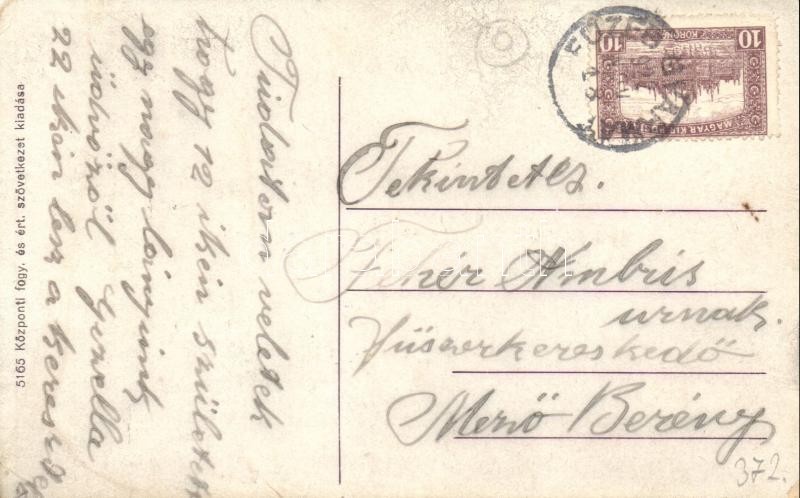 Tudatom veletek
hogy 12 ikén született
egy nagy lányunk
üdvözöl Gizella
22 ikén lesz a keresztelő
5165 Központi fogy. és ért. szövetkezet kiadása
10 KORONA 10
MAGYAR KIR
Tekintetes.
Fehér Ambris
urnak.
Fűszerkereskedő
Mező Berény
372.